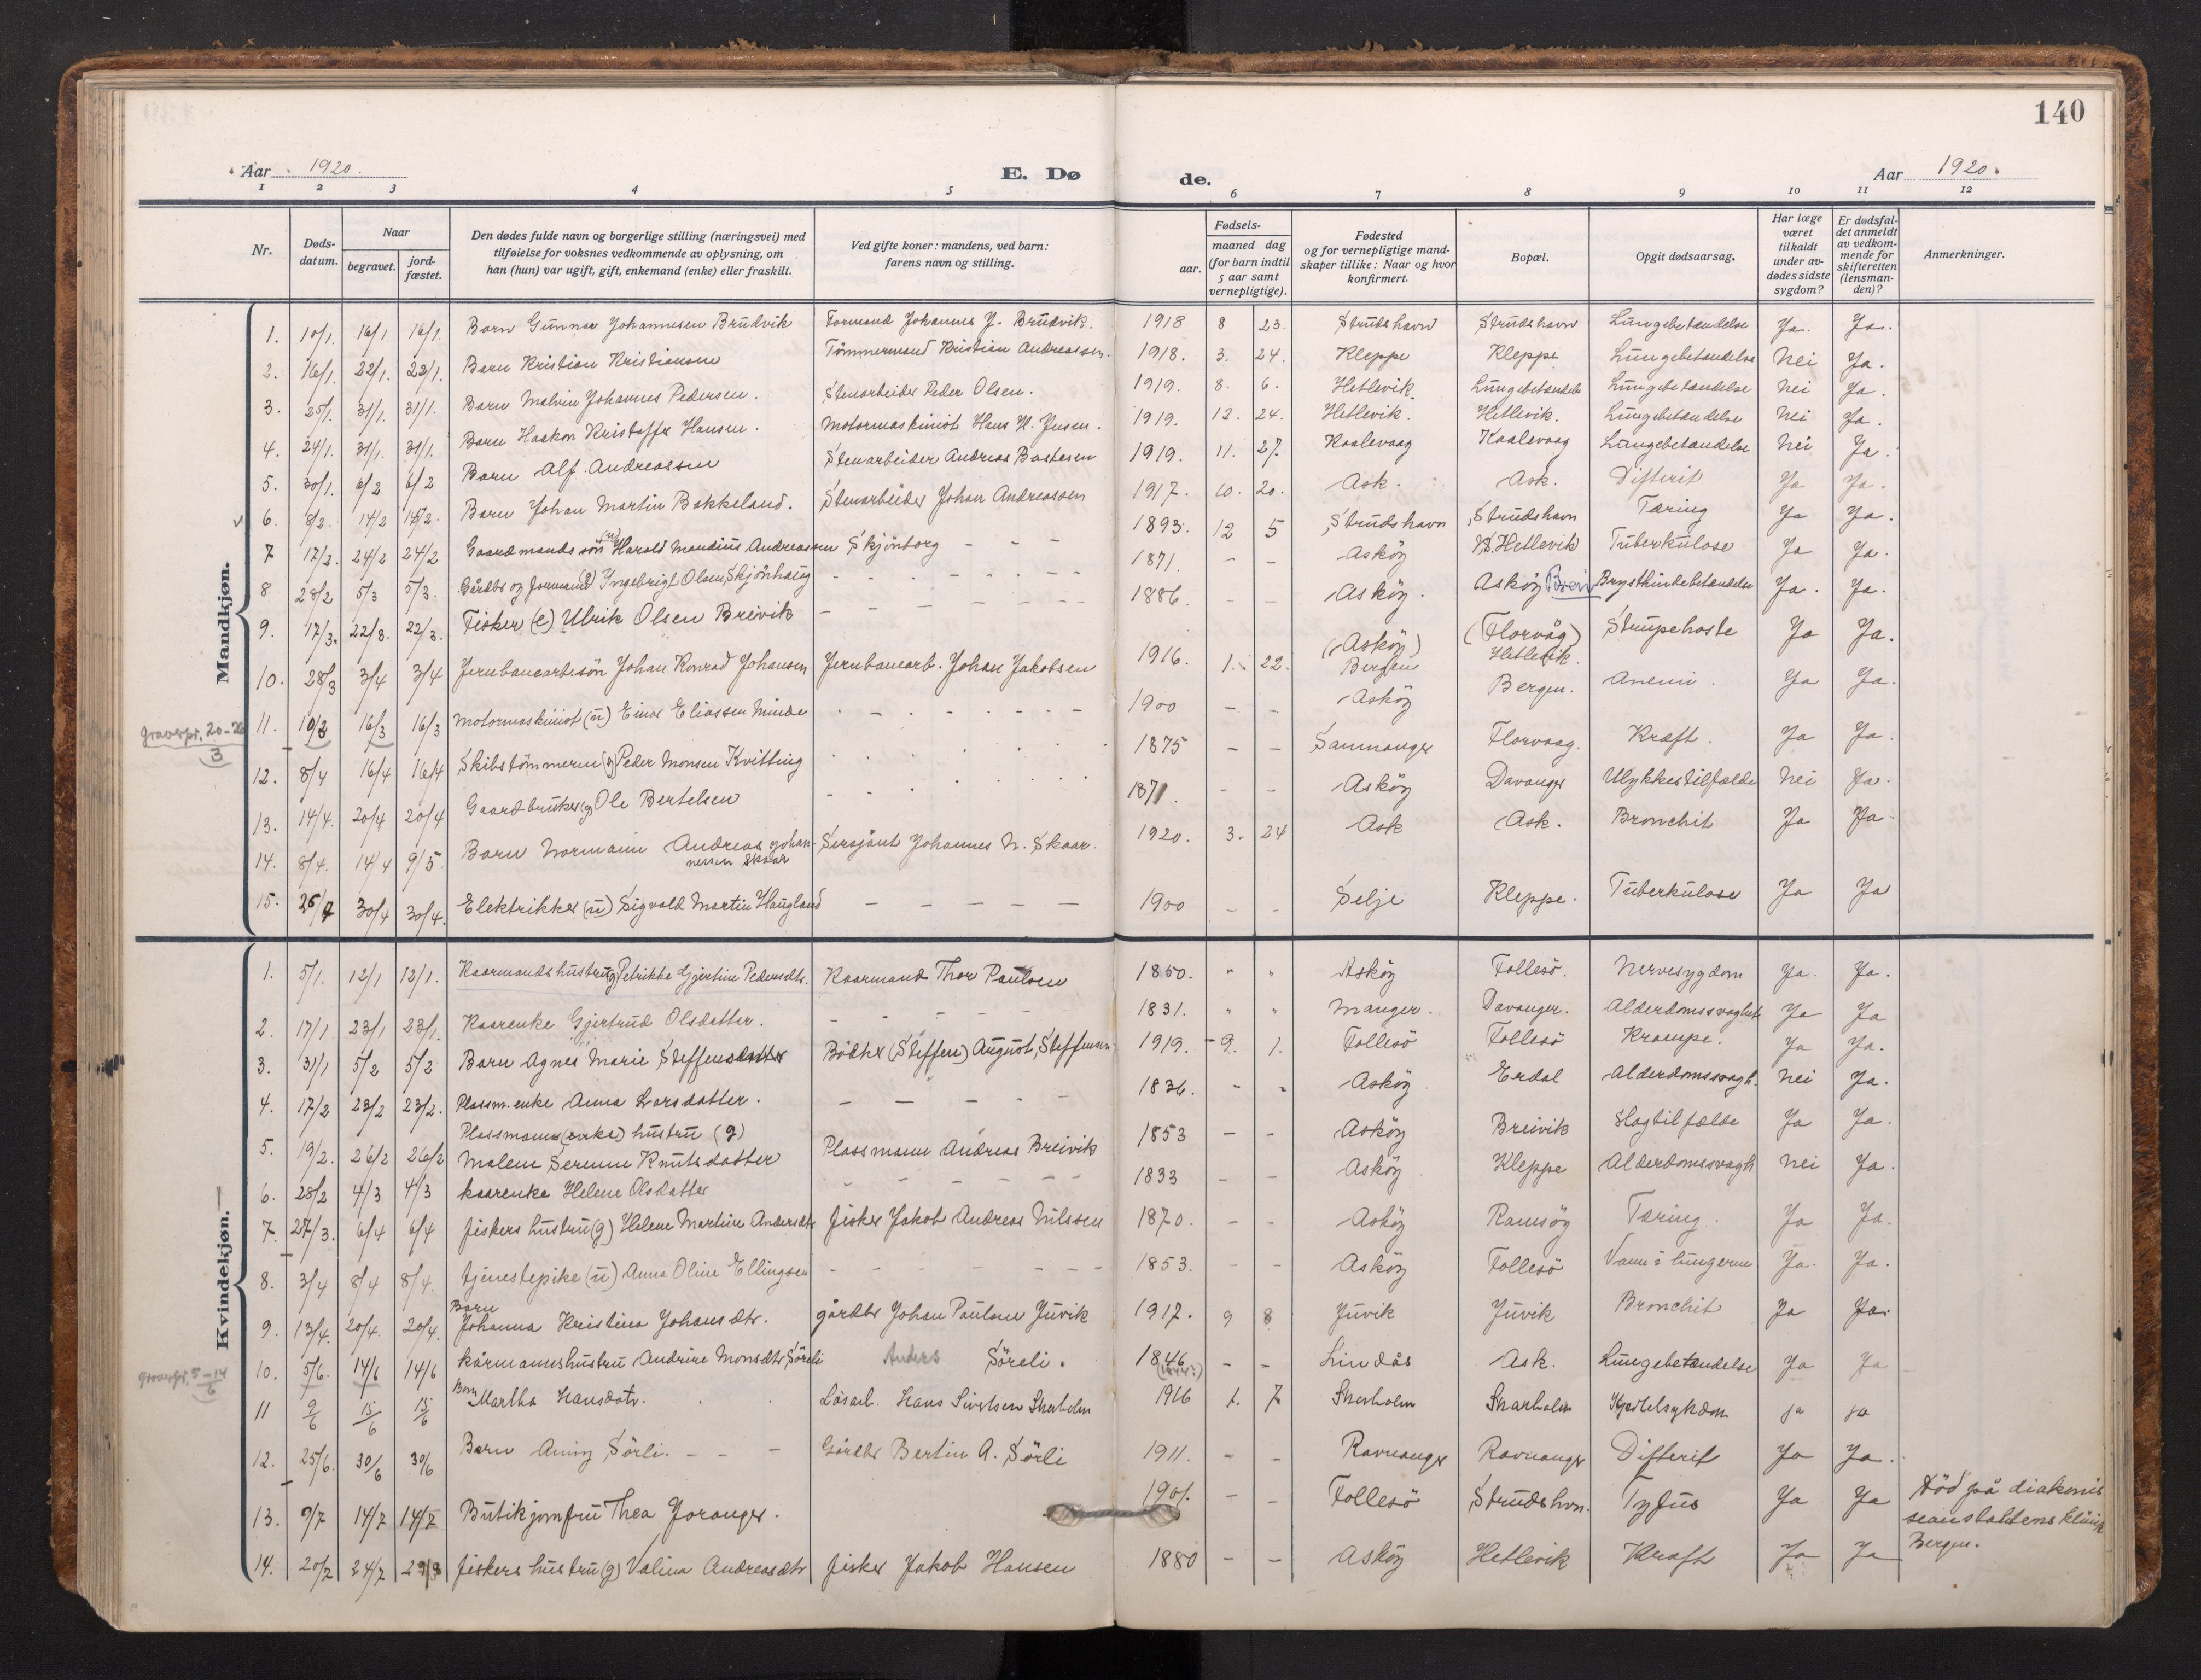 140
Aar 1920.
E. Dø
de.
Aar 1920.
1 2 3 4 5 6 7 8 9 10 11 12
Nr.
Døds-datum.
Naar
begravet.
jord-fæstet.
Den dødes fulde navn og borgerlige stilling (næringsvei) med
tilføielse for voksnes vedkommende av oplysning, om
han (hun) var ugift, gift, enkemand (enke) eller fraskilt.
Ved gifte koner: mandens, ved barn:
farens navn og stilling.
Fødsels-
aar.
maaned dag
(for barn indtil
5 aar samt
vernepligtige).
Fødested
og for vernepligtige mand-
skaper tillike: Naar og hvor
konfirmert.
Bopæl.
Opgit dødsaarsag.
Har læge
været
tilkaldt
under av-
dødes sidste
sygdom?
Er dødsfal-
det anmeldt
av vedkom-
mende for
skifteretten
(lensman-
den)?
Anmerkninger.
Mandkjøn.
1. 10/1. 16/1 16/1. Barn Gunnar Johannesen Brudvik Formand Johannes J. Brudvik. 1918 8 23. Strudshavn Strudshavn Lungebetændelse Ja. Ja.
2. 16/1. 22/1. 22/1. Barn Kristian Kristiansen Tømmermand Kristian Andreassen. 1918. 3. 24. Kleppe Kleppe Lungebetændelse Nei Ja.
3. 25/1. 31/1. 31/1. Barn Malvin Johannes Pedersen. Stenarbeider Peder Olsen. 1919. 8. 6. Hetlevik. Lungebetændelse Lungebetændelse Nei Ja.
4. 24/1. 31/1. 31/1. Barn Haakon Kristoffer Hansen. Motormaskinist Hans H. Jensen. 1919. 12. 24. Hetlevik. Hetlevik. Lungebetændelse Nei Ja.
5. 30/1. 6/2 6/2 Barn Alf Andreassen Stenarbeider Andreas Bastesen 1919. 11. 27. Kaalevaag Kaalevaag Lungebetændelse Nei Ja.
6. 8/2. 14/2 14/2. Barn Johan Martin Bakkeland. Stenarbeider Johan Andreassen 1917. 10. 20. Ask. Ask. Difterit Ja Ja.
7 17/2. 24/2 24/2 Gaardmandssøn (u) Harald Mandius Andreassen Skjönborg - - - 1893. 12 5 Strudshavn Strudshavn Tæring Ja Ja.
8 28/2 5/3 5/3. Gårdbr og formand (g) Ingebrigt Olsen Skjönhaug - - - 1871. - - Asköy Hetlevik Tuberkulose Ja Ja.
9. 17/3. 22/3. 22/3. Fisker (e) Ulrik Olsen Breivik - - - 1886. - - Asköy. Asköy Breiv Brysthindebetændelse Ja. Ja.
10. 28/3 3/4 3/4 Jernbanearb.søn Johan Konrad Johansen Jernbanearb. Johan Jakobsen 1916. 1. 22. (Asköy) Bergen (Florvåg) Hetlevik. Strupehoste Ja Ja.
graverpr. 20-26/3
11. 10/3 16/3 16/3 Motormaskinist (u) Einar Eliassen Minde - - - 1900 - - Asköy Bergen. Anemi. Ja Ja.
12. 8/4 16/4 16/4 Skibstømmerm (g) Peder Monsen Kvitting 1875 - - Samnanger Florvaag. Kræft. Ja Ja.
13. 14/4. 20/4 20/4 Gaardbruker (g) Ole Bertelsen 1871. - - Asköy Davanger Ulykkestilfælde Nei Ja.
14. 8/4. 14/4 9/5. Barn Normann Andreas Johan-nessen Skaar Sersjant Johannes N. Skaar. 1920. 3. 24 Ask Ask. Bronchit Ja Ja.
15. 25/4 30/4 30/4. Elektrikker (u) Sigvald Martin Haugland - - - - - 1900 - - Selje Kleppe. Tuberkulose Ja Ja
Kvindekjøn.
1. 5/1. 12/1 12/1. Kaarmandshustru (g) Petrikke Gjertine Pedersdtr. Kaarmand Thor Paulsen 1850. " " Asköy Follesö. Nervesygdom Ja. Ja.
2. 17/1 23/1 23/1. Kaarenke Gjertrud Olsdatter. - - - 1831. " " Manger. Davanger. Alderdomssvaghet Ja Ja
3. 31/1 5/2 5/2 Barn Agnes Marie Steffensdatter Bödker (Steffen) August Steffensen 1919. - 9. 1. Follesö Follesö Krampe. Ja Ja.
4. 17/2 23/2 23/2. Plassm. enke Anna Larsdatter. - - - - - 1836. - - Asköy Erdal Alderdomssvagh. Nei Ja.
5. 19/2. 26/2 26/2 Plassmann (enke) hustru (g) Malene Serenne Knutsdatter Plassmann Andreas Breivik 1853 - - Asköy Breivik Slagtilfælde Ja Ja.
6. 28/2 4/3 4/3 Kaarenke Helene Olsdatter - - - 1833 - - Asköy Kleppe Alderdomssvagh Nei Ja.
7. 27/3. 6/4 6/4 fiskers hustru (g) Helene Martine Andersdtr fisker Jakob Andreas Nilssen 1870. - - Asköy Ramsöy Tæring. Ja Ja.
8. 3/4 8/4 8/4. tjenestepike (u) Anna Oline Ellingsen - - - 1853. - - Asköy Follesö Vann i lungerne Ja. Ja.
9. 13/4. 20/4. 20/4. Barn Johanna Kristina Johansdtr. gårdbr Johan Paulsen Juvik 1917. 9 8 Juvik Juvik Bronchit Ja Ja.
graverpr. 5-14/6
10. 5/6. 14/6 14/6 kårmannshustru Andrine Monsdtr Söreli Anders Söreli. 1846 - - Lindås Ask. Lungebetændelse Ja Ja
11 9/6 15/6 15/6 Barn Martha Hansdatr. Lösarb. Hans Sivertsen Skarholm 1916 1. 7 Skarholm Skarholm Kjertelsykdom ja ja
12. 25/6. 30/6 30/6 Barn Anny Sörli. - - - Gårdbr Bertin A. Sörli 1911. - - Ravnanger Ravnanger Difterit Ja Ja.
13. 9/7 14/7 14/7 Butikjomfru Thea Joranger. 1901. - - Follesö Strudshvn. Tyfus Ja Ja Död på diakonis
seanstaltens klinik
Bergen.
14. 20/7 24/7 29/8 fiskers hustru (g) Valina Andreasdtr fisker Jakob Hansen 1880 - - Asköy Hetlevik Kræft Ja Ja